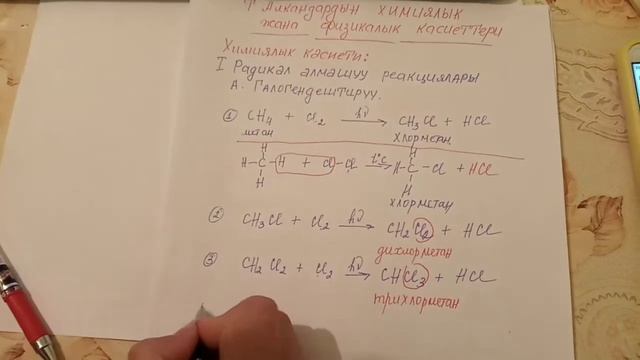 Алкандардын химиялык
жана физикалык касиеттери
Химиялык касиети:
I Радикал алмашуу реакциялары
А. Галогендештирүү.
① CH4 + Cl2 hν → CH3Cl + HCl
метан хлорметан
H H
H–C–H + Cl–Cl t°C → H–C–Cl + HCl
H H
хлорметан
② CH3Cl + Cl2 hν → CH2Cl2 + HCl
дихлорметан
③ CH2Cl2 + Cl2 hν → CHCl3 + HCl
трихлорметан